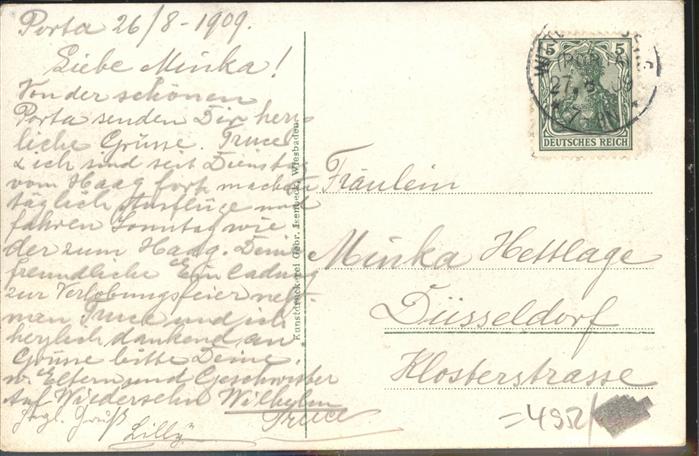 Porta 26/8-1909.
Liebe Minka!
Von der schönen
Porta senden Dir herz-
liche Grüsse. Truce
& ich sind seit Dienst.
vom Haag fort machen
täglich Ausflüge und
fahren Sonntag wie
der zum Haag. Deine
freundliche Einladung
zur Verlobungsfeier neh-
men Truce und ich
herzlich dankend an
Grüsse bitte Deine
w. Eltern und Geschwister
Auf Wiedersehn Wilhelm
Truce
Hrzl. Gruß
Lilly
Kunstdruckerei Gebr. Isenbeck, Wiesbaden
5 5
DEUTSCHES REICH
(PORTA)
27.8.09
Fräulein
Minka Hettlage
Düsseldorf
Klosterstrasse
=4952/